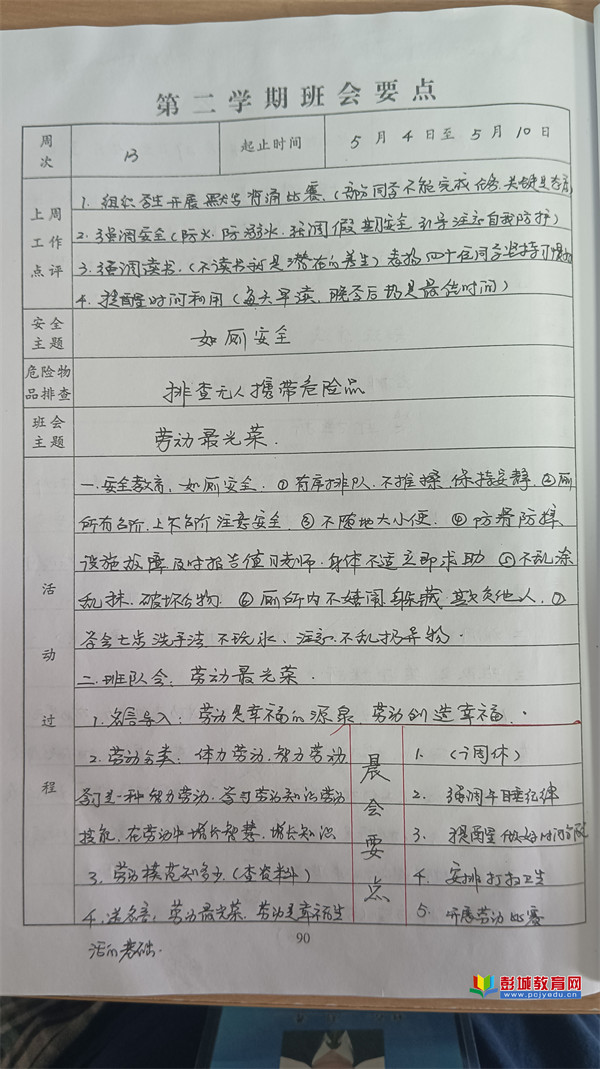 第二学期班会要点
周次 13 起止时间 5月4日至5月10日
上周工作点评
1. 组织学生开展默写背诵比赛.(部分同学不能完成任务.关键是态度)
2. 强调安全(防火.防溺水.强调假期安全 引导注意自我防护)
3. 强调读书.(不读书就是潜在的差生)表扬四十位同学坚持习惯好
4. 提醒时间利用(每天早读.晚餐后都是最佳时间)
安全主题 如厕安全
危险物品排查 排查无人携带危险品
班会主题 劳动最光荣.
活动过程
一.安全教育:如厕安全.①有序排队.不推搡 保持安静.②厕
所有台阶.上下台阶注意安全.③不随地大小便.④防滑防摔.
设施故障及时报告值日老师.身体不适立即求助 ⑤不乱涂
乱抹.破坏公物.⑥厕所内不嬉闹.躲藏.欺负他人.⑦
学会七步洗手法.不玩水、注意不乱扔异物.
二.班队会:劳动最光荣.
1.名言导入:劳动是幸福的源泉.劳动创造幸福.
2.劳动分类:体力劳动.智力劳动
学习是一种智力劳动.学习劳动知识劳动
技能.在劳动中增长智慧.增长知识
3.劳动模范知多少.(查资料)
4.送名言:劳动最光荣.劳动是幸福生
活的基础.
晨会要点
1. (周休)
2. 强调午睡纪律
3. 提醒做好时间
4. 安排打扫卫生
5. 开展劳动比赛
90
彭城教育网
www.pcjyedu.cn